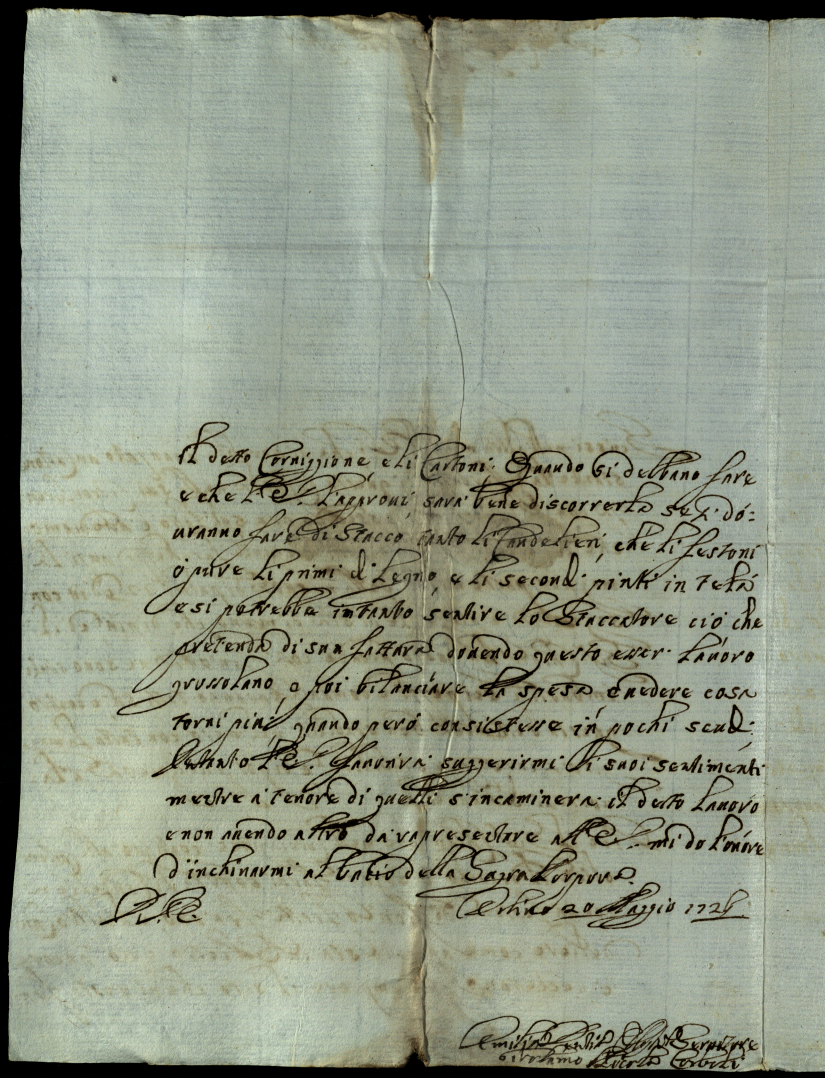 il detto Corniggione, e li Cartoni. Quando si debbano fare
e che l'E. V. l'approvi, sarà bene discorrerla se si do=
uranno fare di Stacco tanto li Candelieri, che li festoni
ò pure li primi di legno, e li secondi pinti in tela
e si potrebbe intanto sentire lo Staccatore ciò che
pretenda di sua fattura douendo questo esser lauoro
grossolano, e poi bilanciare la spesa, e uedere cosa
torni più, quando però consistesse in pochi scudi.
Intanto l'E. V. fauorirà suggerirmi li suoi sentimenti
mentre a tenore di quelli s'incaminerà il detto lauoro
e non auendo altro da rapresentare all'E. V. mi do l'onore
d'inchinarmi al bacio della Sagra Porpora.
D. V. E.
Urbino 20 Maggio 172
Umilissimo Seruitore
Girolamo